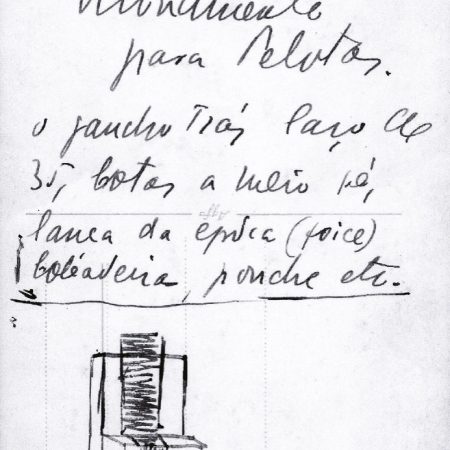 Monumento
para Pelotas.
o gaucho Trás laço de
35, botas a meio pé,
lanca da epóca (foice)
boléadeira, ponche etc.